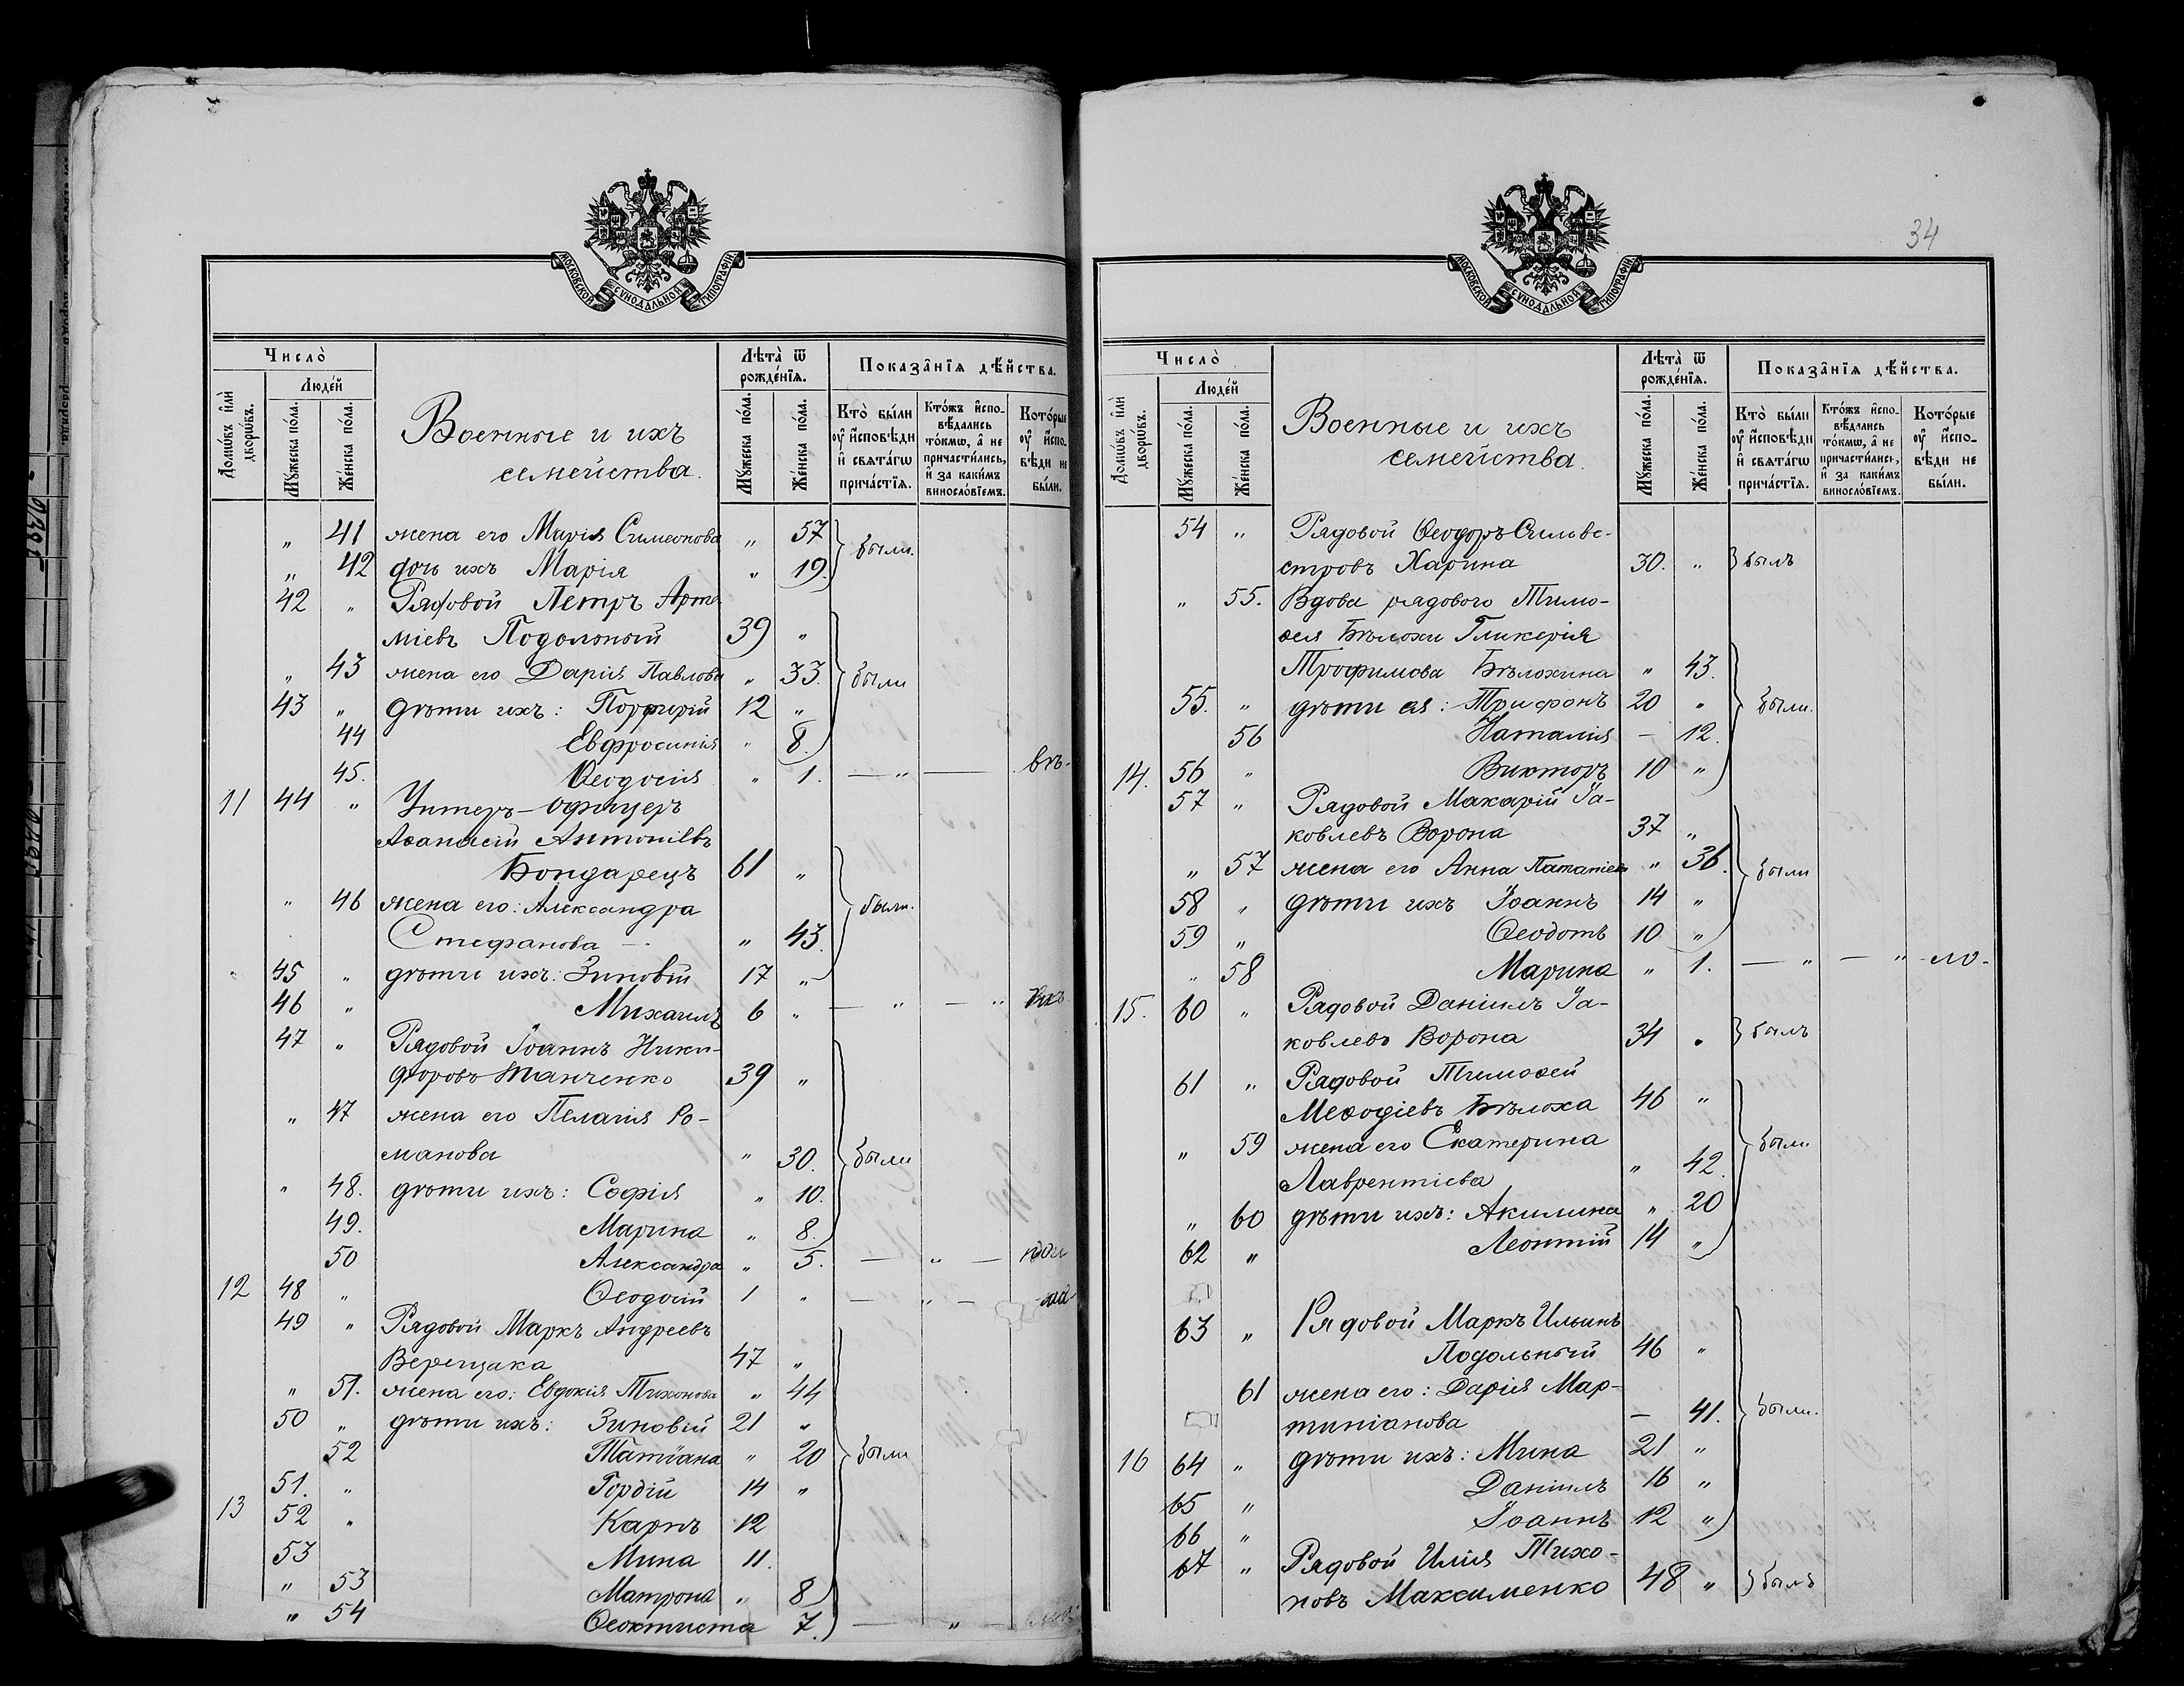 МОСКОВСКОЙ СѴНОДАЛЬНОЙ ТИПОГРАФІИ
Число̀
Людéй
Домѡ́въ и҆лѝ дворѡ́въ.
Мꙋ́жеска по́ла.
Же́нска по́ла.
Военные и ихъ
семейства.
Лѣ́та ѿ рожде́нїя.
Мꙋ́жеска по́ла.
Же́нска по́ла.
Показа̑нїя дѣ́йства.
Кто̀ бы́ли ᲂу҆ и҆сповѣди и҆ свята́гѡ прича́стїя.
Кто́жъ и҆спо- вѣ́дались то́кмѡ, а҆ не причасти́лись, и҆ за каки́мъ виносло́вїемъ.
Кото́рые ᲂу҆ и҆спо- вѣди не бы́ли.
„ 41 жена его Марія Симеонова „ 57 были.
„ 42 дочь ихъ Марія „ 19.
42 „ Рядовой Петръ Арте-
міевъ Подольный 39 „
„ 43 жена его Дарія Павлова „ 33. были
43 „ дѣти ихъ: Порфирій 12 „
44 Евфросинія „ 8.
45. Ѳеодосія „ 1. — „ —
11 44 „ Унтеръ-офицеръ
Аѳанасій Антоніевъ
Бондарецъ 61 „
„ 46 жена его: Александра были.
Стефанова — „ 43.
45 „ дѣти ихъ: Зиновій 17 „
46 „ Михаилъ 6 „ — „ — „
47 „ Рядовой Іоаннъ Ники-
форовъ Танченко 39 „
„ 47 жена его Пелагія Ро-
манова „ 30. были
„ 48. дѣти ихъ: Софія „ 10.
49. Марина „ 8.
50 Александра „ 5. — „ —
12 48 „ Ѳеодосій 1 „ — „ —
49 „ Рядовой Маркъ Андреевъ
Верещака 47 „
„ 51. жена его: Евдокія Тихонова „ 44
50 „ дѣти ихъ: Зиновій 21 „
52 Татіана „ 20 были
51. „ Гордій 14 „
13 52 „ Карпъ 12
53 Мина 11.
„ 53 Матрона „ 8
„ 54 Ѳеоктиста 7. — „ —
34
МОСКОВСКОЙ СѴНОДАЛЬНОЙ ТИПОГРАФІИ
Число̀
Людéй
Домѡ́въ и҆лѝ дворѡ́въ.
Мꙋ́жеска по́ла.
Же́нска по́ла.
Военные и ихъ
семейства.
Лѣ́та ѿ рожде́нїя.
Мꙋ́жеска по́ла.
Же́нска по́ла.
Показа̑нїя дѣ́йства.
Кто̀ бы́ли ᲂу҆ и҆сповѣди и҆ свята́гѡ прича́стїя.
Кто́жъ и҆спо- вѣ́дались то́кмѡ, а҆ не причасти́лись, и҆ за каки́мъ виносло́вїемъ.
Кото́рые ᲂу҆ и҆спо- вѣди не бы́ли.
54 „ Рядовой Ѳеодоръ Сильве-
стровъ Харина 30. „ былъ
„ 55. Вдова рядового Тимо-
ѳея Бѣлохи Гликерія
Трофимова Бѣлохина „ 43.
55. „ дѣти ея: Трифонъ 20 „ были.
56 Наталія — 12.
14. 56 „ Викторъ 10 „
57 „ Рядовой Макарій Іа-
ковлевъ Ворона 37 „
„ 57 жена его Анна „ 36. были
58 „ дѣти ихъ Іоаннъ 14 „
59 „ Ѳеодотъ 10 „
„ 58 Марина „ 1. — „ — „ -ло-
15. 60 „ Рядовой Даніилъ Іа-
ковлевъ Ворона 34 „ былъ
61 „ Рядовой Тимоѳей
Меѳодіевъ Бѣлоха 46 „
„ 59 жена его Екатерина были
Лаврентіева „ 42.
„ 60 дѣти ихъ: Акилина „ 20
62 „ Леонтій 14 „
63 „ Рядовой Маркъ Ильинъ
Подольный 46 „
61 жена его: Дарія Мар-
тиніанова — 41. были.
16 64 „ дѣти ихъ: Мина 21 „
65 „ Даніилъ 16 „
66 „ Іоаннъ 12 „
67 „ Рядовой Илія Тихо-
новъ Максименко 48 „ былъ